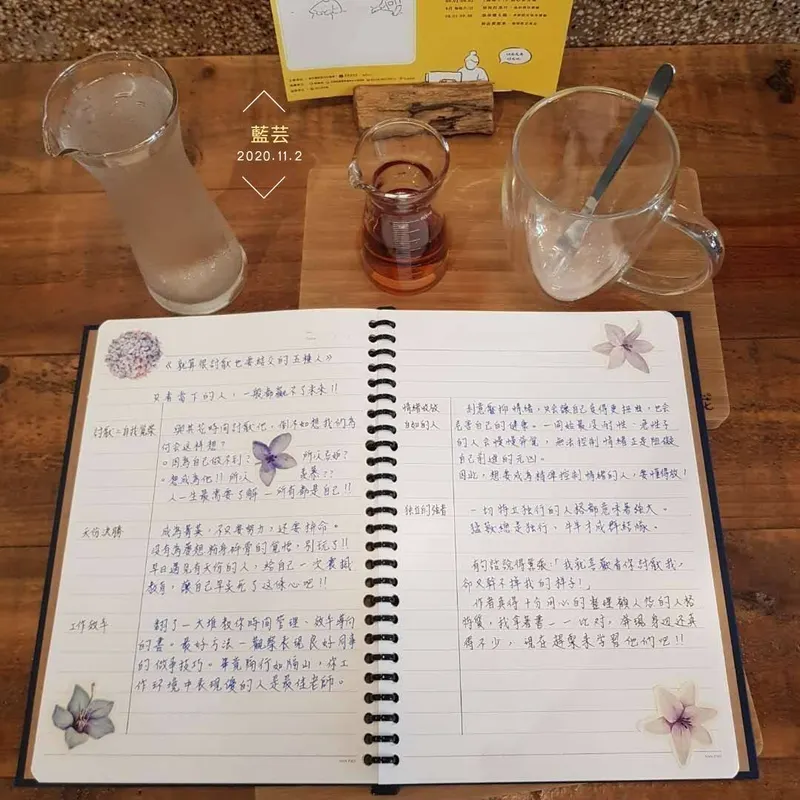 藍芸
2020.11.2
《就算很討厭也要結交的五種人》
只看當下的人，一般都觀不了未來!!
討厭=自我覺察
與其花時間討厭他，倒不如想我們為
何會這樣想？
。因為自己做不到？
。想成為他!! 所以
所以忌妒？
羨慕??
人一生最需要了解－所有都是自己!!
天份決勝
成為菁英，不只要努力，還要拚命。
沒有為夢想粉身碎骨的覺悟，別玩了!!
早日遇見有天份的人，給自己一次震撼
教育，讓自己早點死了這條心吧!!
工作效率
翻了一大堆教你時間管理、效率導向
的書。最好方法－觀察表現良好同事
的做事技巧。畢竟隔行如隔山，你工
作環境中表現優的人是最佳老師。
情緒收放
自如的人
刻意壓抑情緒，只會讓自己變得更扭曲，也會
危害自己的健康。一開始最沒耐性、急性子
的人會慢慢察覺，無法控制情緒正是阻礙
自己前進的元凶。
因此，想要成為精準控制情緒的人，要懂得放！
獨立的強者
一切特立獨行的人格都意味著強大。
猛獸總是獨行，牛羊才成群結隊。
的話說得貫徹「我就喜歡看你討厭我，
卻又幹不掉我的樣子！」
作者真得十分用心的整理顧人怨的人格
特質，我拿著書一一比對，發現身邊還真
得不少，現在趕緊來學習他們吧!!